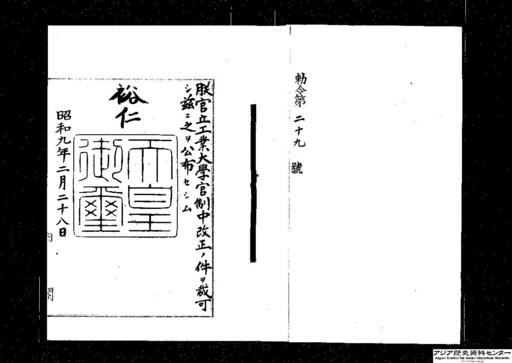 勅令第二十九號
朕官立工業大學官制中改正ノ件ヲ裁可
シ茲ニ之ヲ公布セシム
裕仁
天皇
御璽
昭和九年二月二十八日
内閣
アジア歴史資料センター
Japan Center for Asian Historical Records